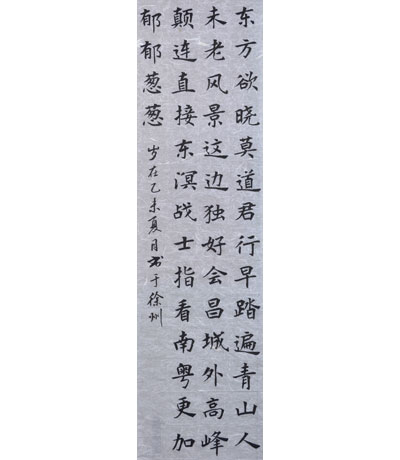 东方欲晓莫道君行早踏遍青山人
未老风景这边独好会昌城外高峰
颠连直接东溟战士指看南粤更加
郁郁葱葱 岁在乙未夏月书于徐州